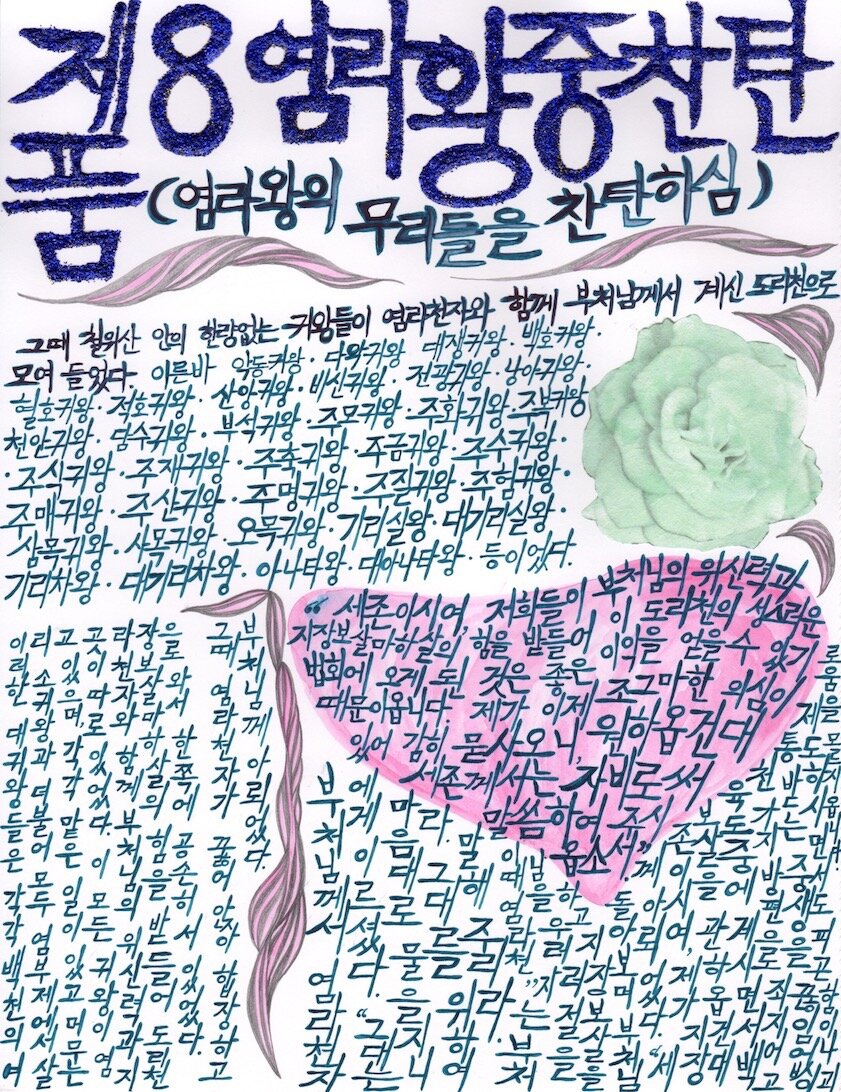 제8 염라왕중찬탄
품
(염라왕의 무리들을 찬탄하심)
그때 철위산 안의 한량없는 귀왕들이 염라천자와 함께 부처님께서 계신 도리천으로
모여 들었다. 이른바 악독귀왕·다악귀왕·대쟁귀왕·백호귀왕·
혈호귀왕·적호귀왕·산앙귀왕·비신귀왕·전광귀왕·낭아귀왕·
천안귀왕·담수귀왕·부석귀왕·주모귀왕·주화귀왕·주복귀왕
·주식귀왕·주재귀왕·주축귀왕·주금귀왕·주수귀왕·
주매귀왕·주산귀왕·주명귀왕·주질귀왕·주험귀왕·
삼목귀왕·사목귀왕·오목귀왕·기리실왕·대기리실왕·
기리차왕·대기리차왕·아나타왕·대아나타왕·등이었다.
이러한 대귀왕들은 각각 백천의 여
러 소귀왕과 더불어 모두 염부제에서 살
고 있으며, 각각 맡은 일이 있고 머무는
곳이 따로 있었다. 이 모든 귀왕이 염
라천자와 함께 부처님의 위신력과 지
장보살마하살의 힘을 받들어 도리천
으로 와서 한쪽에 공손히 서 있었다.
그때 염라천자가 꿇어 앉아 합장하고
부처님께 아뢰었다.
“세존이시여 저희들이 부처님의 위신력과
지장보살마하살의 힘을 받들어 이 도리천의 성스러운
법회에 오게 된 것은 좋은 이익을 얻을 수 있기
때문이옵니다. 제가 이제 조그마한 의심이
있어 감히 묻사오니, 원하옵건대
세존께서는 자비로써
말씀하여 주시
옵소서.”
부처님께서 염라천자
에게 이르셨다. “그대는
마음대로 물을지니
라. 그대를 위하여
말해 주리라.”
이때 염라천자는 부처
님을 우러러 절을
하고 지장보살을
돌아보며 부처님
께 아뢰었다. “세
존이시여, 제가 지장대
보살을 관하옵건대
육도 중에 계시면서 백
천 가지 방편으로 죄지어 고
통 받는 중생을 끊임없이
제도하시면서도 피곤함이나 괴
로움을 모르시옵니다.